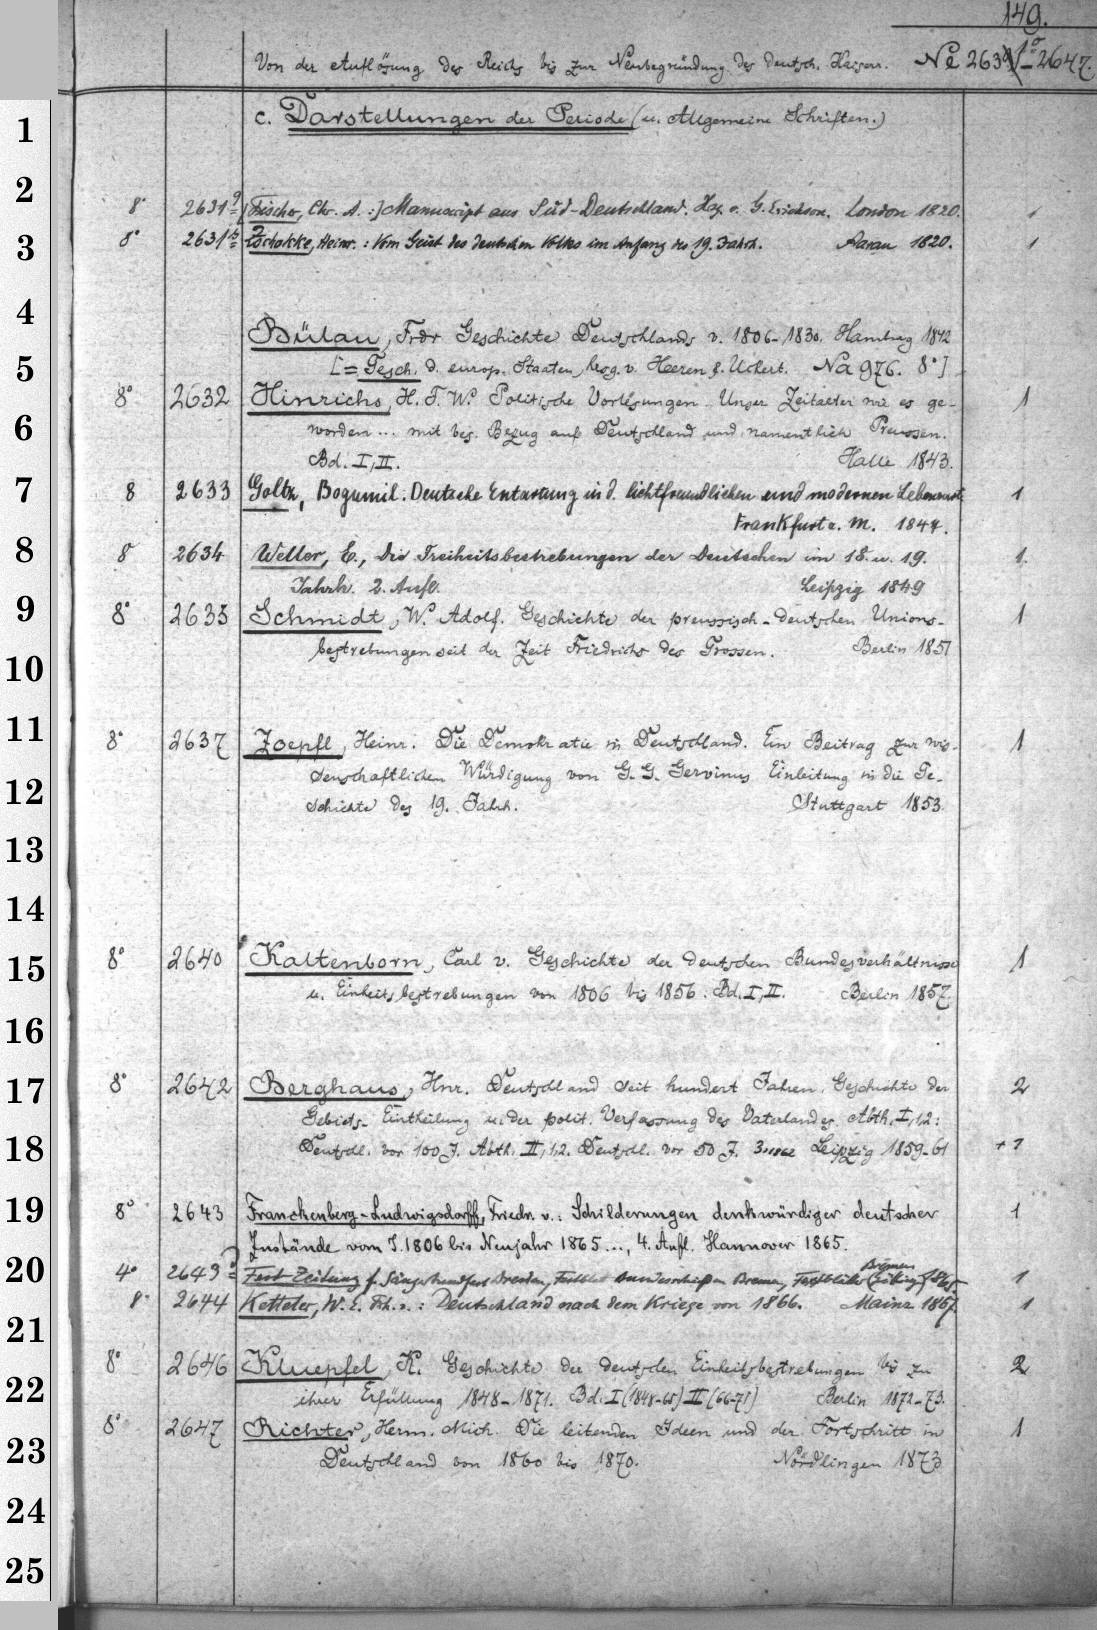 149.
Von der Auflösung des Reichs bis zur Neubegründung des deutsch. Kaiserr. № 2631a-2647.
1
c. Darstellungen der Periode (u. Allgemeine Schriften.)
2
8° 2631a [Fischer, Chr. A.:] Manuscript aus Süd-Deutschland. Hsg. v. G. Erichson. London 1820. 1
3
8° 2631b Zschokke, Heinr.: Vom Geist des deutschen Volkes im Anfang des 19. Jahrh. Aarau 1820. 1
4
Bülau, Frdr Geschichte Deutschlands v. 1806-1830. Hamburg 1842
5
[= Gesch. d. europ. Staaten, hrsg. v. Heeren & Uckert. Na 976. 8°]
8° 2632 Hinrichs, H. F. W. Politische Vorlesungen. Unser Zeitalter wie es ge- 1
6
worden ... mit bes. Bezug auf Deutschland und namentlich Preussen.
Bd. I, II. Halle 1843.
7
8 2633 Goltz, Bogumil. Deutsche Entartung in d. lichtfreundlichen und modernen Lebensart 1
Frankfurt a. M. 1847.
8
8 2634 Weller, E., Die Freiheitsbestrebungen der Deutschen im 18. u. 19. 1.
Jahrh. 2. Aufl. Leipzig 1849
9
8° 2635 Schmidt, W. Adolf. Geschichte der preussisch-deutschen Unions- 1
10
bestrebungen seit der Zeit Friedrichs des Grossen. Berlin 1851
11
8° 2637 Zoepfl, Heinr. Die Demokratie in Deutschland. Ein Beitrag zur wis- 1
senschaftlichen Würdigung von G. G. Gervinus Einleitung in die Ge-
12
schichte des 19. Jahrh. Stuttgart 1853.
13
14
15
8° 2640 Kaltenborn, Carl v. Geschichte der deutschen Bundesverhältnisse 1
u. Einheitsbestrebungen von 1806 bis 1856. Bd. I, II. Berlin 1857.
16
17
8° 2642 Berghaus, Hnr. Deutschland seit hundert Jahren. Geschichte der 2
Gebiets-Eintheilung u. der polit. Verfassung des Vaterlandes. Abth. I, 1,2:
18
Deutschl. vor 100 J. Abth. II, 1,2. Deutschl. vor 50 J. Leipzig 1859-61 +1
19
8° 2643 Franckenberg-Ludwigsdorff, Friedr. v.: Schilderungen denkwürdiger deutscher 1
Zustände vom J. 1806 bis Neujahr 1865..., 4. Aufl. Hannover 1865.
20
4° 2643a Fest-Zeitung f. Sängerbundfest Dresden, Bundesschießen Bremen, Bremen 1865. 1
8° 2644 Ketteler, W. E. Frh. v.: Deutschland nach dem Kriege von 1866. Mainz 1867. 1
21
8° 2646 Kluepfel, K. Geschichte der deutschen Einheitsbestrebungen bis zu 2
22
ihrer Erfüllung 1848-1871. Bd. I (1848-65) II (66-71) Berlin 1872-73.
8° 2647 Richter, Herm. Mich. Die leitenden Ideen und der Fortschritt in 1
23
Deutschland von 1860 bis 1870. Nördlingen 1873
24
25